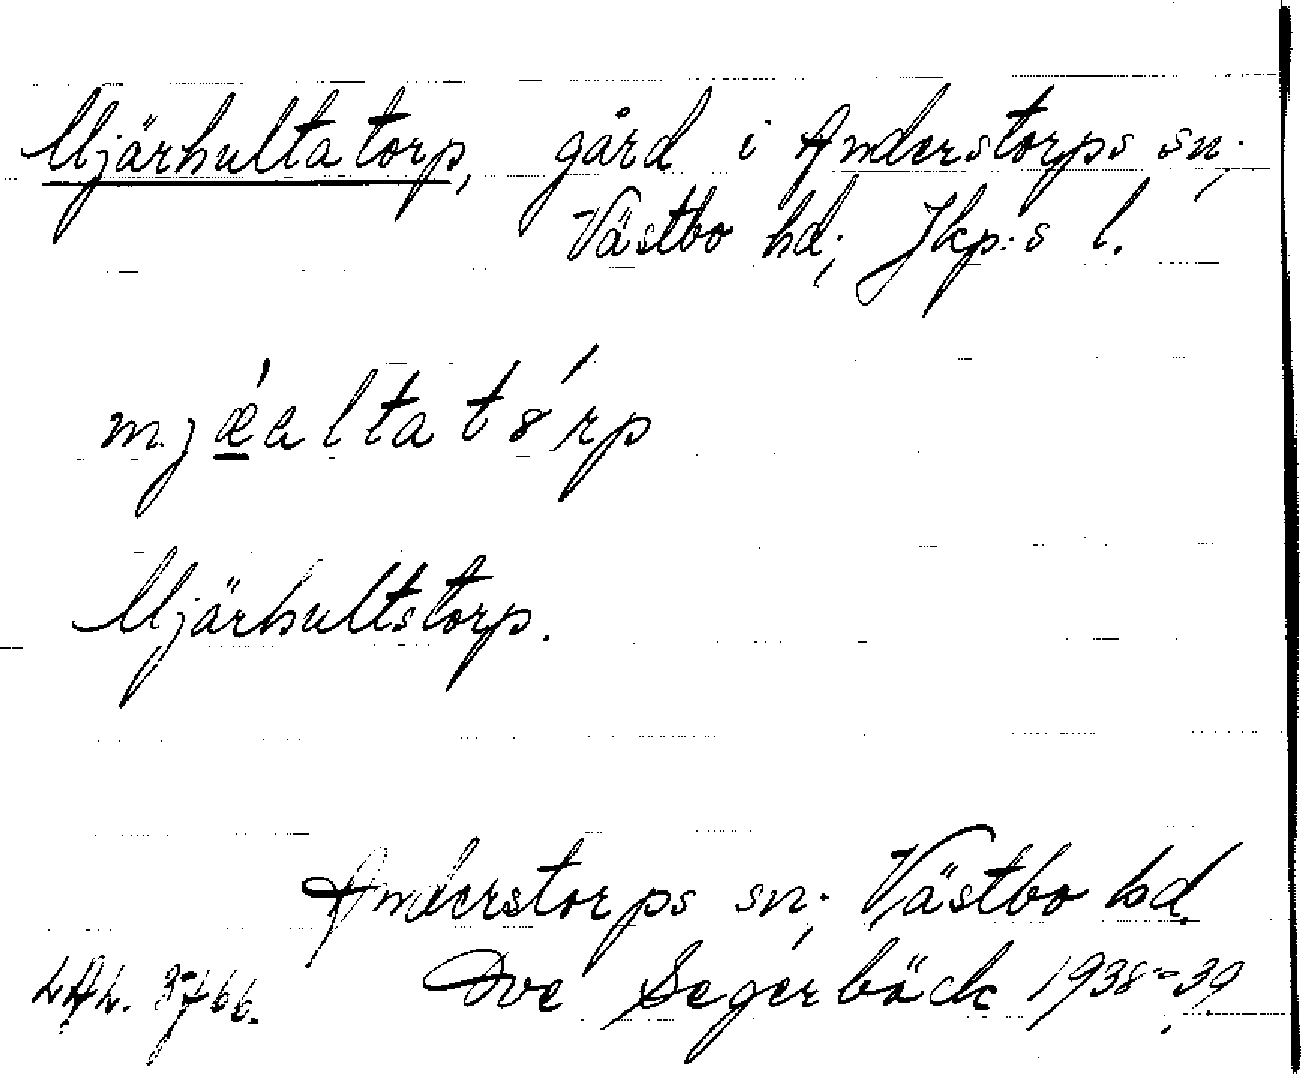 Mjärhultatorp, gård i Anderstorps sn.,
Västbo hd., Jkp:s l.
mjǽaltatórp
Mjärhultstorp.
Anderstorps sn., Västbo hd.
Ove Segerbäck 1938-39.